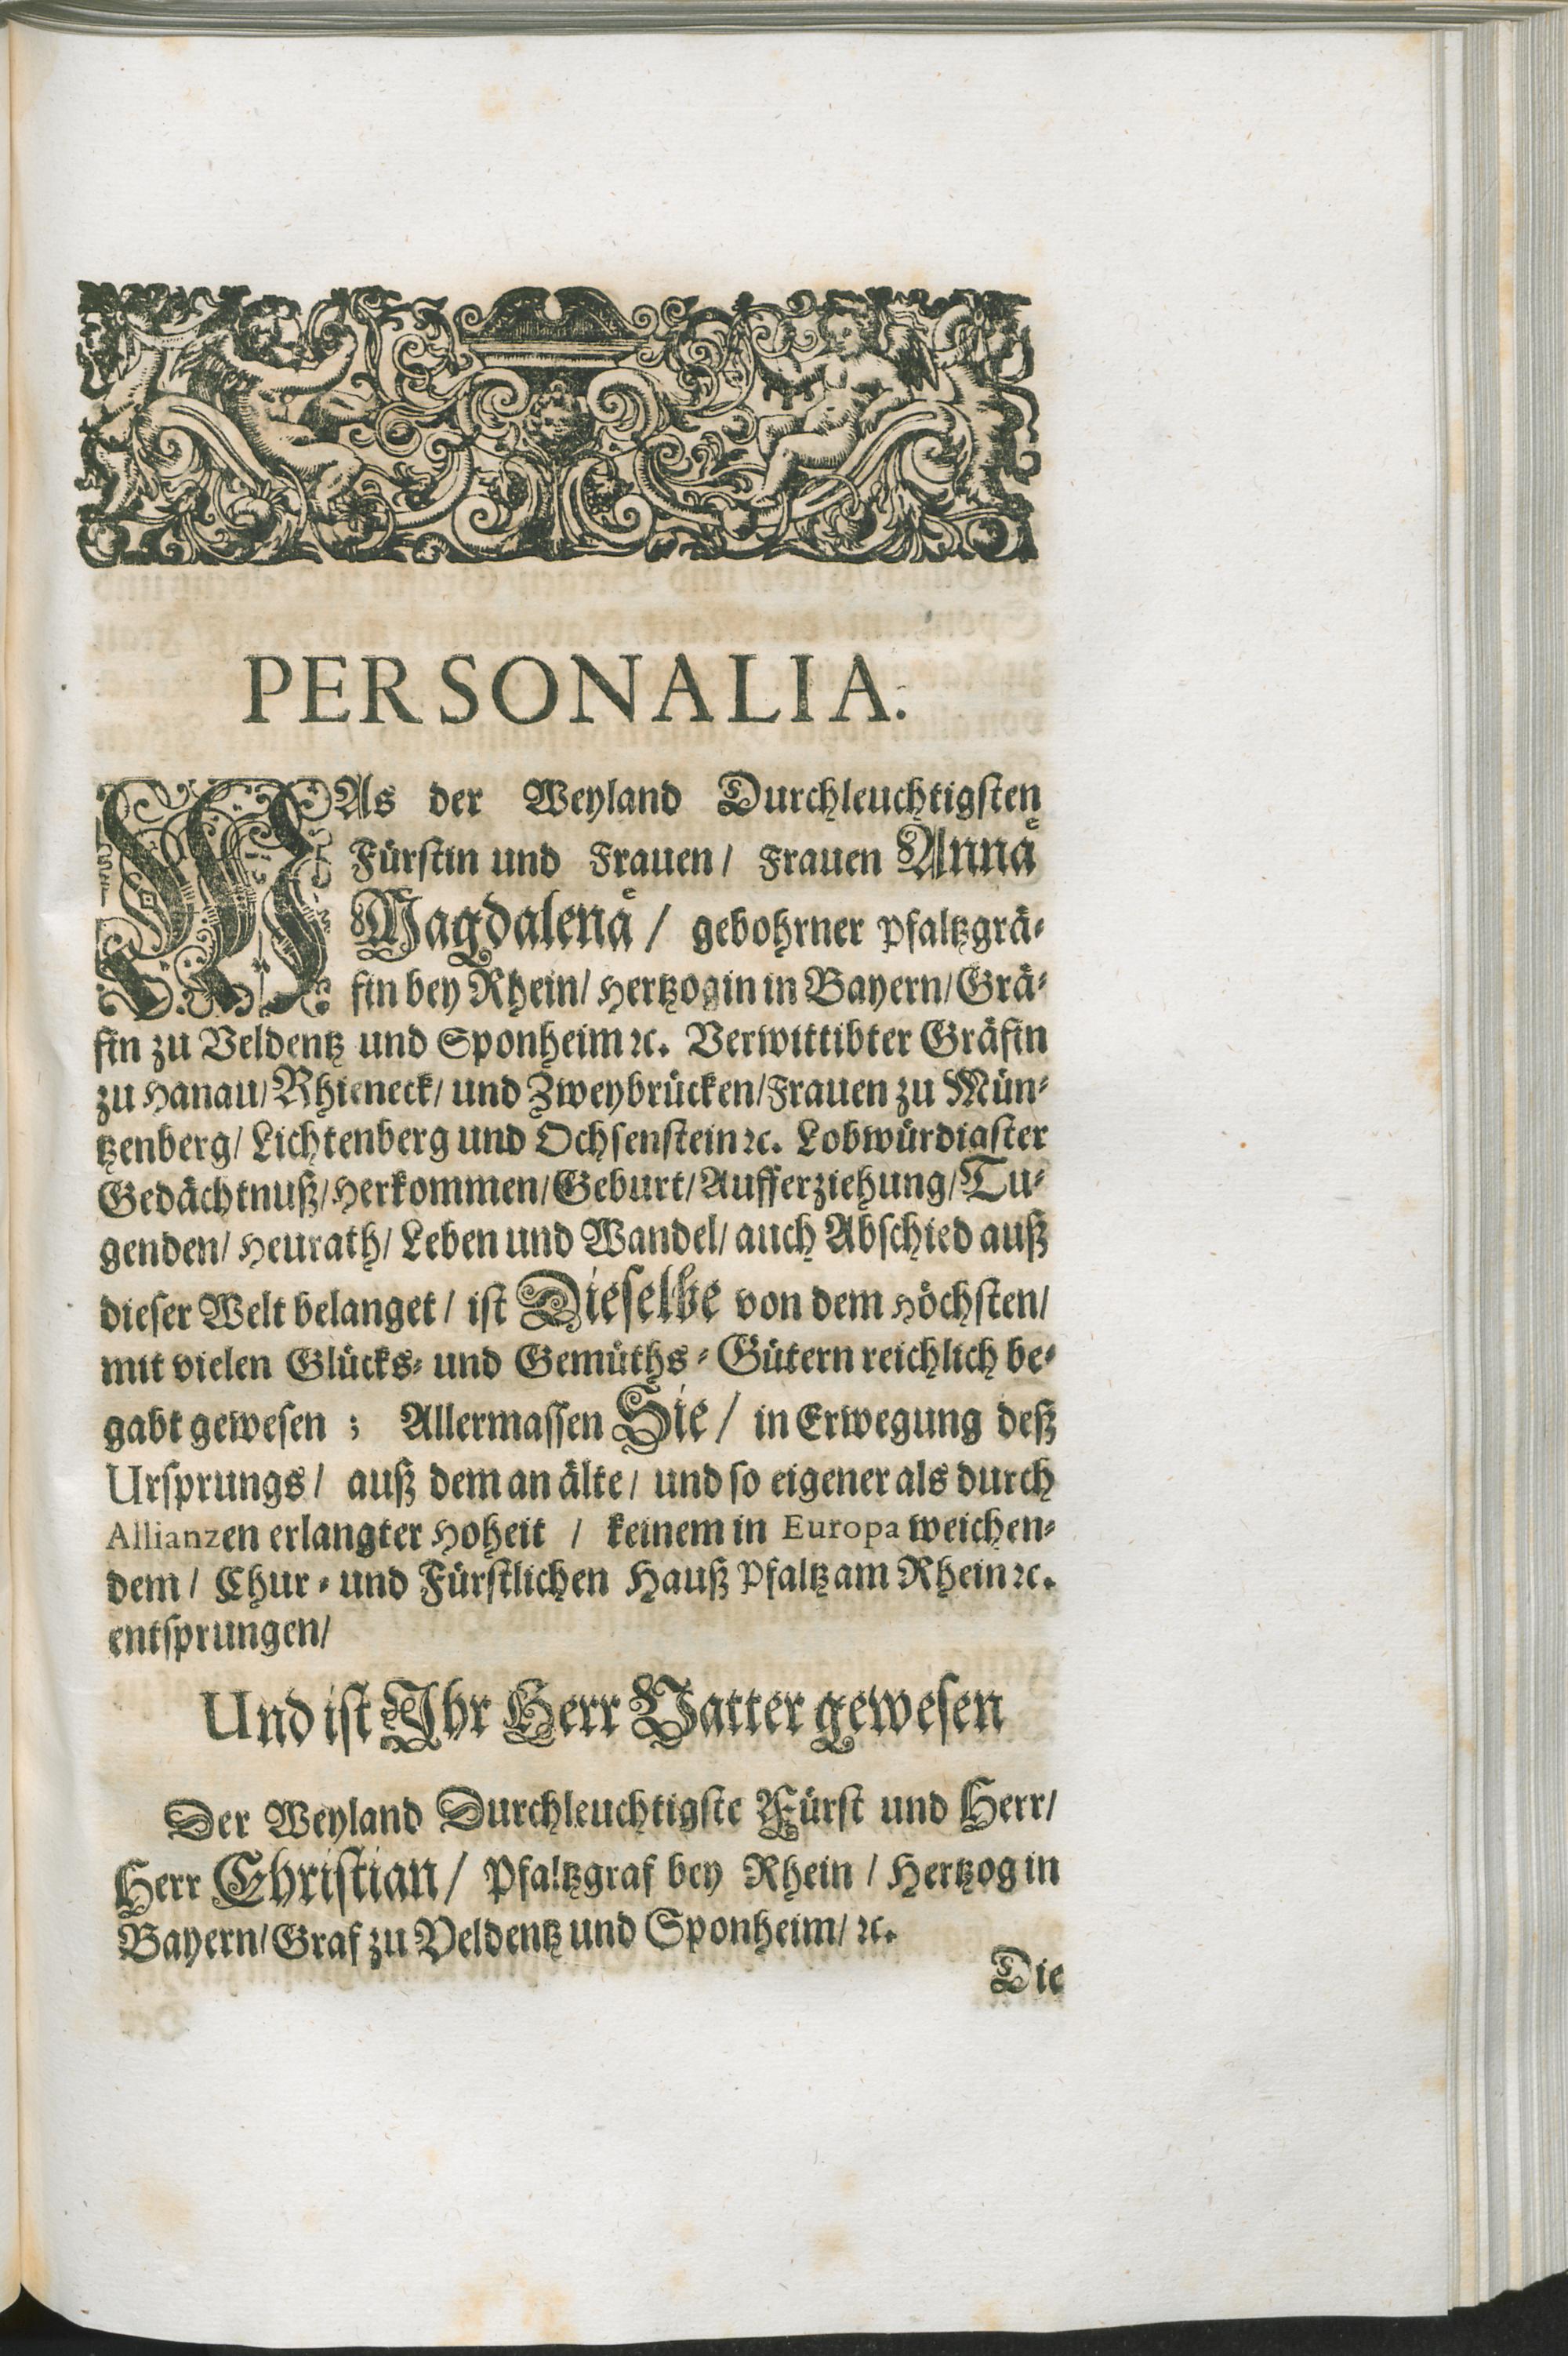 PERSONALIA.
WAs der Weyland Durchleuchtigsten
Fürstin und Frauen/ Frauen Annä
Magdalenä/ gebohrner Pfaltzgrä-
fin bey Rhein/ Hertzogin in Bayern/ Grä-
fin zu Veldentz und Sponheim ꝛc. Verwittibter Gräfin
zu Hanau/ Rhieneck/ und Zweybrücken/ Frauen zu Mün-
tzenberg/ Lichtenberg und Ochsenstein ꝛc. Lobwürdigster
Gedächtnuß/ Herkommen/ Geburt/ Aufferziehung/ Tu-
genden/ Heurath/ Leben und Wandel/ auch Abschied auß
dieser Welt belanget/ ist Dieselbe von dem Höchsten/
mit vielen Glücks- und Gemüths-Gütern reichlich be-
gabt gewesen; Allermassen Sie/ in Erwegung deß
Ursprungs/ auß dem an älte/ und so eigener als durch
Allianzen erlangter Hoheit/ keinem in Europa weichen-
dem/ Chur- und Fürstlichen Hauß Pfaltz am Rhein ꝛc.
entsprungen/
Und ist Ihr Herr Vatter gewesen
Der Weyland Durchleuchtigste Fürst und Herr/
Herr Christian/ Pfaltzgraf bey Rhein/ Hertzog in
Bayern/ Graf zu Veldentz und Sponheim/ ꝛc.
Die